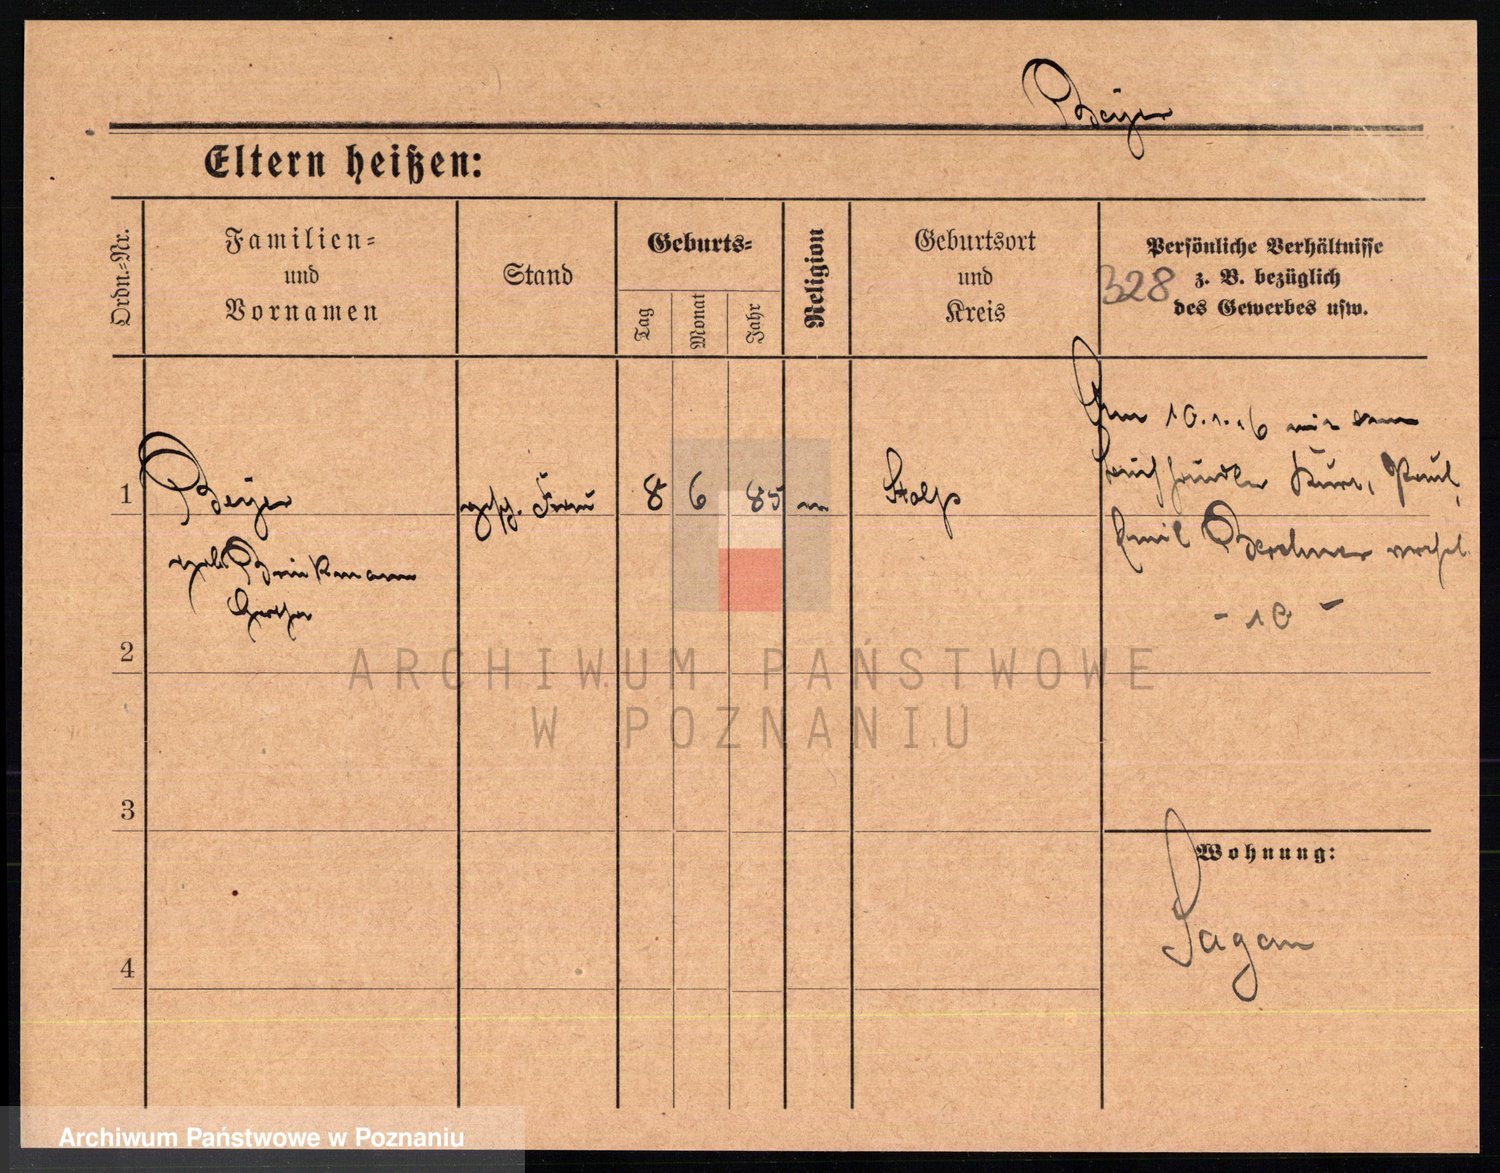 Beyer
Eltern heißen:
Ordn.-Nr.
Familien-
und
Vornamen
Stand
Geburts-
Tag
Monat
Jahr
Religion
Geburtsort
und
Kreis
Persönliche Verhältnisse
z. B. bezüglich
des Gewerbes usw.
328
1
Beyer
geb. Brinkmann
gesch. Frau
8
6
85
Stolp
Am 10.1.16 mit dem
Kurt, Paul,
Emil
- 10 -
2
3
4
Wohnung:
Sagan
ARCHIWUM PAŃSTWOWE
W POZNANIU
Archiwum Państwowe w Poznaniu